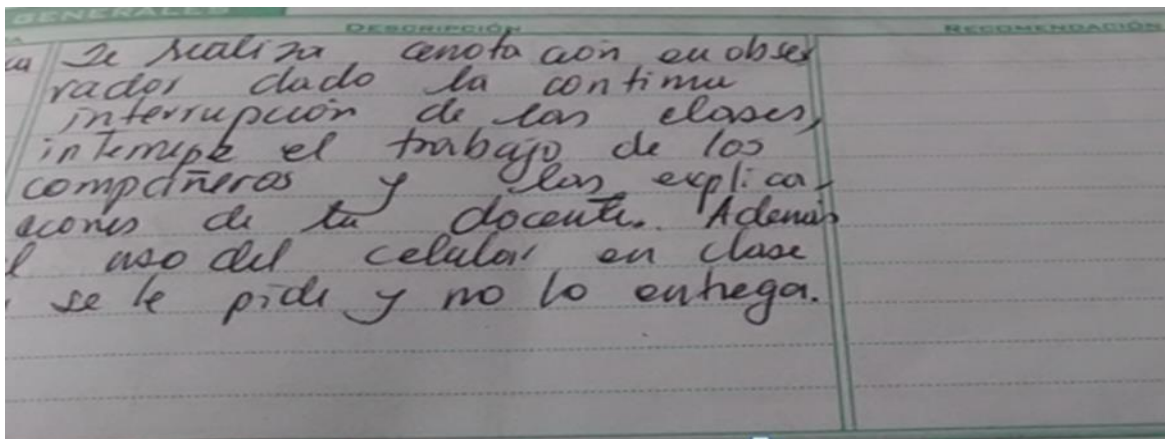 GENERALES
DESCRIPCIÓN RECOMENDACIÓN
ca Se realiza anotación en obser
vador dado la continua
interrupción de las clases,
interrumpe el trabajo de los
compañeros y las explica
aciones de la docente. Además
l uso del celular en clase
se le pide y no lo entrega.